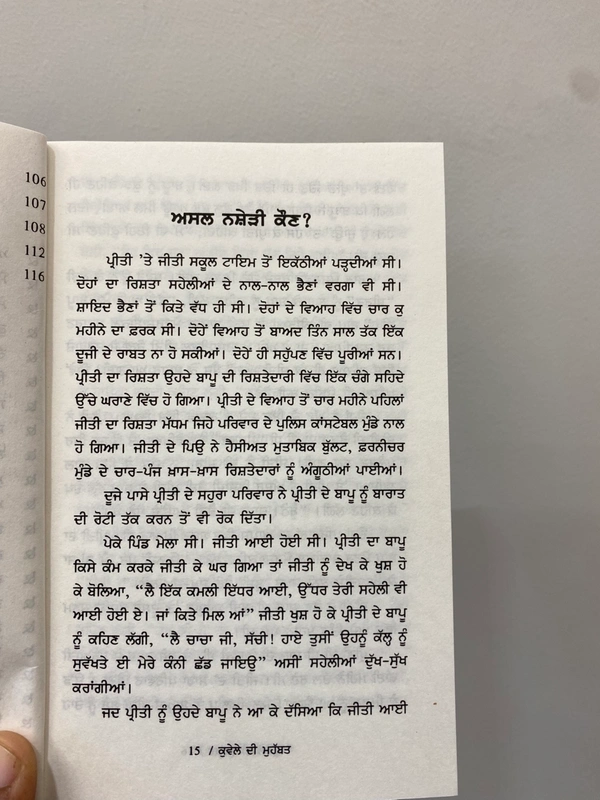 106
107
108
112
116
ਅਸਲ ਨਸ਼ੇੜੀ ਕੌਣ?
ਪ੍ਰੀਤੀ 'ਤੇ ਜੀਤੀ ਸਕੂਲ ਟਾਇਮ ਤੋਂ ਇਕੱਠੀਆਂ ਪੜ੍ਹਦੀਆਂ ਸੀ।
ਦੋਹਾਂ ਦਾ ਰਿਸ਼ਤਾ ਸਹੇਲੀਆਂ ਦੇ ਨਾਲ-ਨਾਲ ਭੈਣਾਂ ਵਰਗਾ ਵੀ ਸੀ।
ਸ਼ਾਇਦ ਭੈਣਾਂ ਤੋਂ ਕਿਤੇ ਵੱਧ ਹੀ ਸੀ। ਦੋਹਾਂ ਦੇ ਵਿਆਹ ਵਿੱਚ ਚਾਰ ਕੁ
ਮਹੀਨੇ ਦਾ ਫ਼ਰਕ ਸੀ। ਦੋਹੇਂ ਵਿਆਹ ਤੋਂ ਬਾਅਦ ਤਿੰਨ ਸਾਲ ਤੱਕ ਇੱਕ
ਦੂਜੀ ਦੇ ਰਾਬਤ ਨਾ ਹੋ ਸਕੀਆਂ। ਦੋਹੇਂ ਹੀ ਸਹੁੱਪਣ ਵਿੱਚ ਪੂਰੀਆਂ ਸਨ।
ਪ੍ਰੀਤੀ ਦਾ ਰਿਸ਼ਤਾ ਉਹਦੇ ਬਾਪੂ ਦੀ ਰਿਸ਼ਤੇਦਾਰੀ ਵਿੱਚ ਇੱਕ ਚੰਗੇ ਸਹਿਦੇ
ਉੱਚੇ ਘਰਾਣੇ ਵਿੱਚ ਹੋ ਗਿਆ। ਪ੍ਰੀਤੀ ਦੇ ਵਿਆਹ ਤੋਂ ਚਾਰ ਮਹੀਨੇ ਪਹਿਲਾਂ
ਜੀਤੀ ਦਾ ਰਿਸ਼ਤਾ ਮੱਧਮ ਜਿਹੇ ਪਰਿਵਾਰ ਦੇ ਪੁਲਿਸ ਕਾਂਸਟੇਬਲ ਮੁੰਡੇ ਨਾਲ
ਹੋ ਗਿਆ। ਜੀਤੀ ਦੇ ਪਿਉ ਨੇ ਹੈਸੀਅਤ ਮੁਤਾਬਿਕ ਬੁੱਲਟ, ਫ਼ਰਨੀਚਰ
ਮੁੰਡੇ ਦੇ ਚਾਰ-ਪੰਜ ਖ਼ਾਸ-ਖ਼ਾਸ ਰਿਸ਼ਤੇਦਾਰਾਂ ਨੂੰ ਅੰਗੂਠੀਆਂ ਪਾਈਆਂ।
ਦੂਜੇ ਪਾਸੇ ਪ੍ਰੀਤੀ ਦੇ ਸਹੁਰਾ ਪਰਿਵਾਰ ਨੇ ਪ੍ਰੀਤੀ ਦੇ ਬਾਪੂ ਨੂੰ ਬਾਰਾਤ
ਦੀ ਰੋਟੀ ਤੱਕ ਕਰਨ ਤੋਂ ਵੀ ਰੋਕ ਦਿੱਤਾ।
ਪੇਕੇ ਪਿੰਡ ਮੇਲਾ ਸੀ। ਜੀਤੀ ਆਈ ਹੋਈ ਸੀ। ਪ੍ਰੀਤੀ ਦਾ ਬਾਪੂ
ਕਿਸੇ ਕੰਮ ਕਰਕੇ ਜੀਤੀ ਕੇ ਘਰ ਗਿਆ ਤਾਂ ਜੀਤੀ ਨੂੰ ਦੇਖ ਕੇ ਖੁਸ਼ ਹੋ
ਕੇ ਬੋਲਿਆ, “ਲੈ ਇੱਕ ਕਮਲੀ ਇੱਧਰ ਆਈ, ਉੱਧਰ ਤੇਰੀ ਸਹੇਲੀ ਵੀ
ਆਈ ਹੋਈ ਏ। ਜਾਂ ਕਿਤੇ ਮਿਲ ਆਂ” ਜੀਤੀ ਖੁਸ਼ ਹੋ ਕੇ ਪ੍ਰੀਤੀ ਦੇ ਬਾਪੂ
ਨੂੰ ਕਹਿਣ ਲੱਗੀ, “ਲੈ ਚਾਚਾ ਜੀ, ਸੱਚੀ! ਹਾਏ ਤੁਸੀਂ ਉਹਨੂੰ ਕੱਲ੍ਹ ਨੂੰ
ਸੁਵੱਖਤੇ ਈ ਮੇਰੇ ਕੰਨੀ ਛੱਡ ਜਾਇਉ” ਅਸੀਂ ਸਹੇਲੀਆਂ ਦੁੱਖ-ਸੁੱਖ
ਕਰਾਂਗੀਆਂ।
ਜਦ ਪ੍ਰੀਤੀ ਨੂੰ ਉਹਦੇ ਬਾਪੂ ਨੇ ਆ ਕੇ ਦੱਸਿਆ ਕਿ ਜੀਤੀ ਆਈ
15 / ਕੁਵੇਲੇ ਦੀ ਮੁਹੱਬਤ